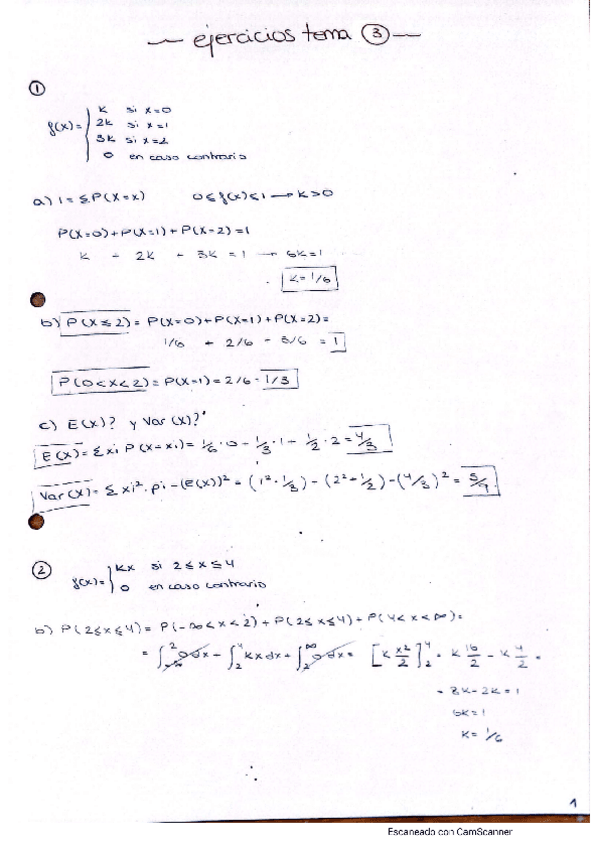 — ejercicios tema ③ —
①
f(x)= { k si x=0
2k si x=1
3k si x=2
0 en caso contrario
a) 1 = ΣP(X=x) 0≤f(x)≤1 → k>0
P(X=0)+P(X=1)+P(X=2)=1
k + 2k + 3k = 1 → 6k=1
k=1/6
b) P(X≤2) = P(X=0)+P(X=1)+P(X=2)=
1/6 + 2/6 + 3/6 = 1
P(0<X<2) = P(X=1) = 2/6 = 1/3
c) E(X)? y Var(X)?
E(X) = Σ xi P(X=xi) = 1/6 · 0 + 1/3 · 1 + 1/2 · 2 = 4/3
Var(X) = Σ xi² · pi - (E(X))² = (1² · 1/3) + (2² · 1/2) - (4/3)² = 5/9
②
f(x)= { kx si 2≤x≤4
0 en caso contrario
b) P(2≤x≤4) = P(-∞<x<2) + P(2≤x≤4) + P(4<x<∞) =
= ∫ 0dx + ∫₂⁴ kx dx + ∫₂^∞ 0dx = [k x²/2]₂⁴ = k 16/2 - k 4/2 =
= 8k - 2k = 1
6k = 1
k = 1/6
1
Escaneado con CamScanner